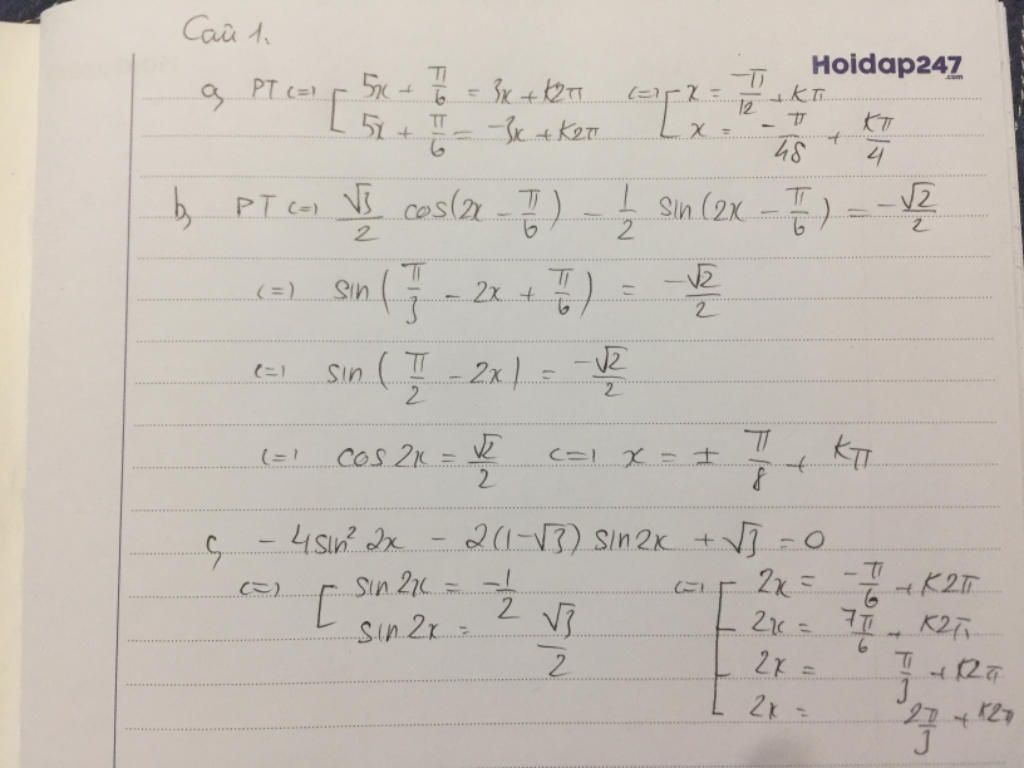 Câu 1.
Hoidap247.com
a, PT <=> [ 5x + π/6 = 3x + k2π <=> [ x = -π/12 + kπ
5x + π/6 = -3x + k2π x = -π/48 + kπ/4
b, PT <=> √3/2 cos(2x - π/6) - 1/2 sin(2x - π/6) = -√2/2
<=> sin(π/3 - 2x + π/6) = -√2/2
<=> sin(π/2 - 2x) = -√2/2
<=> cos2x = √2/2 <=> x = ± π/8 + kπ
c, -4sin² 2x - 2(1-√3) sin2x + √3 = 0
<=> [ sin2x = -1/2 <=> [ 2x = -π/6 + k2π
sin2x = √3/2 2x = 7π/6 + k2π
2x = π/3 + k2π
2x = 2π/3 + k2π